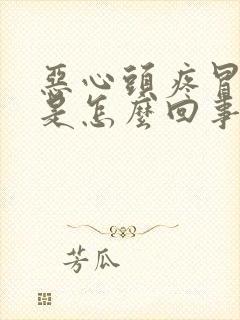 惡心頭疼冒
是怎麼回事
芳瓜